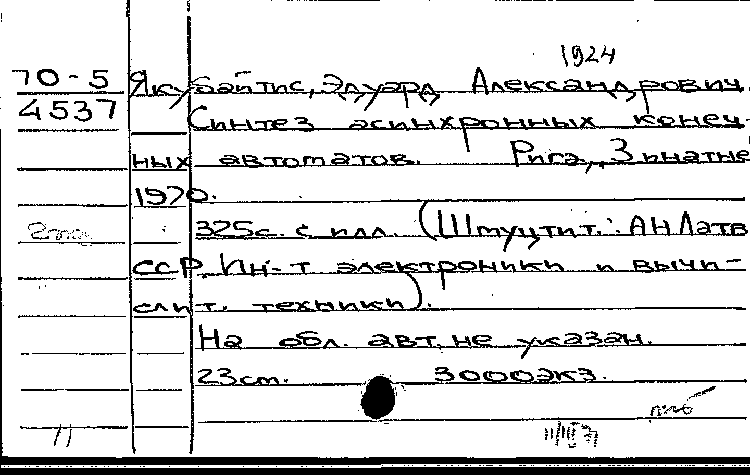 1924
70-5 Якубайтис, Эдуард Александрович.
4537 Синтез асинхронных конеч-
ных автоматов. Рига, Зинатне
1970.
325с. с илл. (Шмуцтит.: АН Латв
ССР. Ин-т электроники и вычи-
слит. техники).
На обл. авт. не указан.
23см. 3000экз.
11